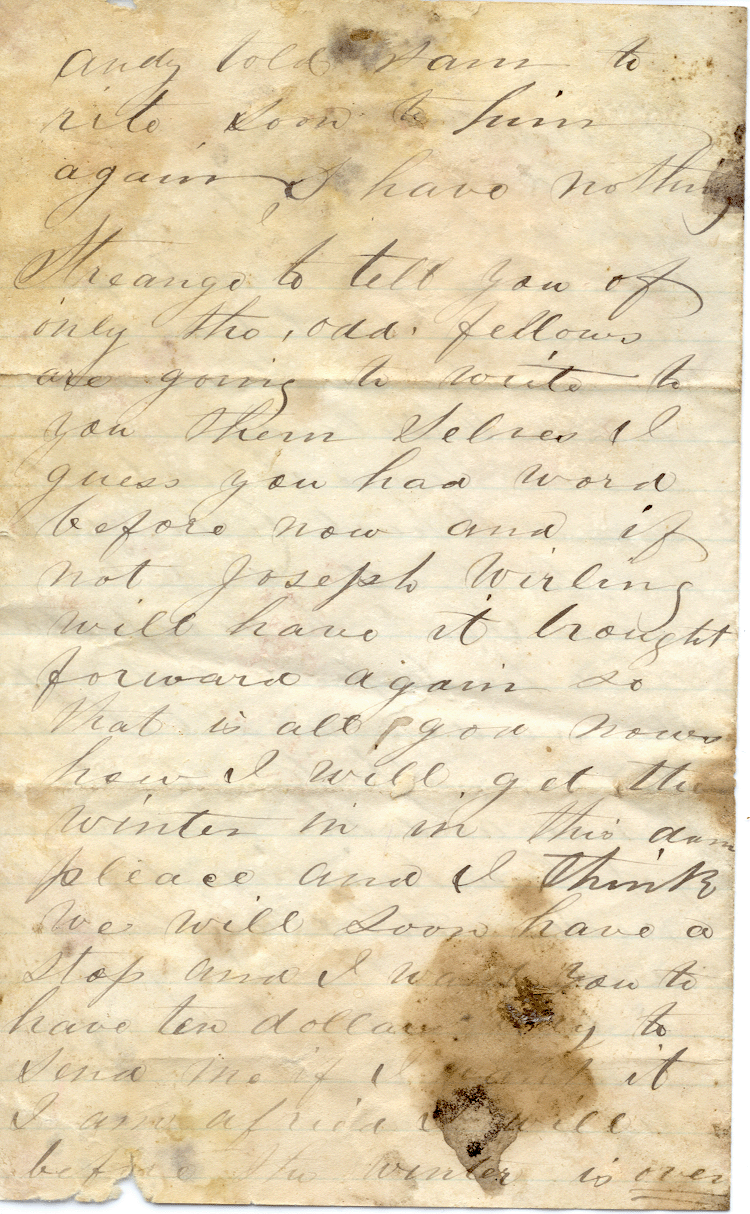 andy told Sam to
rite soon to him
again I have nothing
Streange to tell you of
only the odd fellows
are going to write to
you them Selves I
guess you had word
before now and if
not Joseph Wirling
will have it brought
forward again so
that is all god nows
how I will get the
winter in in this dam
pleace and I think
we will soon have a
stop and I want you to
have ten dollars to
send me if I want it
I am afriad I will
before the winter is over